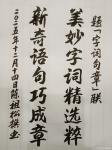 题“字词句章”联
美妙字词精选粹
新奇语句巧成章
二〇二五年十二月十四日陈祖松撰并书